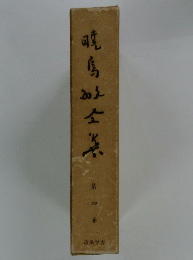 暁烏敏全集
第四巻